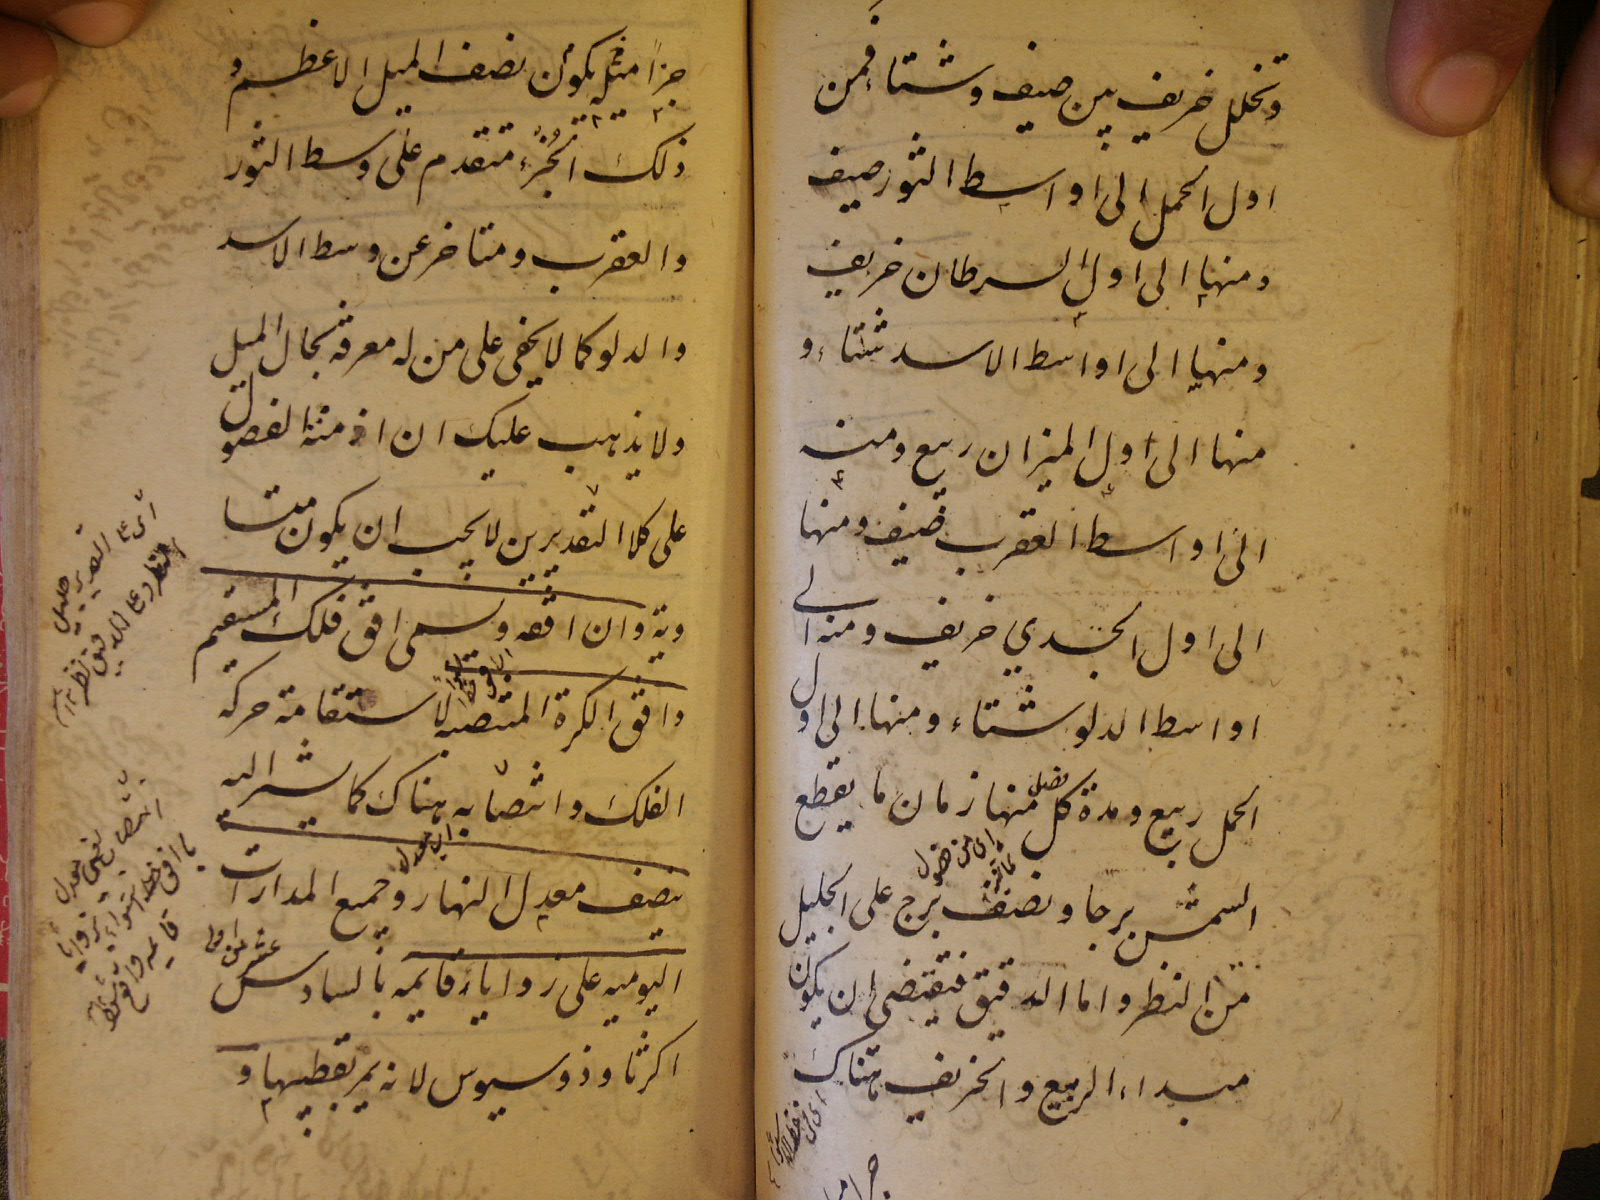 وتخلل خريف بين صيف وشتاء فمن
اول الحمل الى اواسط الثور صيف
ومنها الى اول السرطان خريف
ومنها الى اواسط الاسد شتاء و
منها الى اول الميزان ربيع ومنه
الى اواسط العقرب صيف ومنها
الى اول الجدي خريف ومنه الى
اواسط الدلو شتاء ومنها الى اول
الحمل ربيع ومدة كل فصل منها زمان ما يقطع
اى من فصول ثمانية
الشمس برجا ونصف برج على الجليل
من النظر واما الدقيق فيقتضي ان يكون
مبداء الربيع والخريف هناك
اى فى خط الاستواء
جزا ميله
جزاً ميله يكون نصف الميل الاعظم و
ذلك الجزء متقدم على وسط الثور
والعقرب ومتاخر عن وسط الاسد
والدلو كما لا يخفى على من له معرفة بحال الميل
ولا يذهب عليك ان ازمنة الفصول
على كلا التقديرين لا يجب ان يكون متسا
وية وان افقه ويسمى افق فلك المستقيم
وافق الكرة المنتصبة لاستقامة حركة
الفلك وانتصابه هناك كما يشير اليه
ينصف معدل النهار وجميع المدارات
اليومية على زوايا قايمه بالسادس عشر من
اكرثاوذوسيوس لانه يمر بقطبيها و
اى على تقدير جليل
النظر وعلى الدقيق نظر